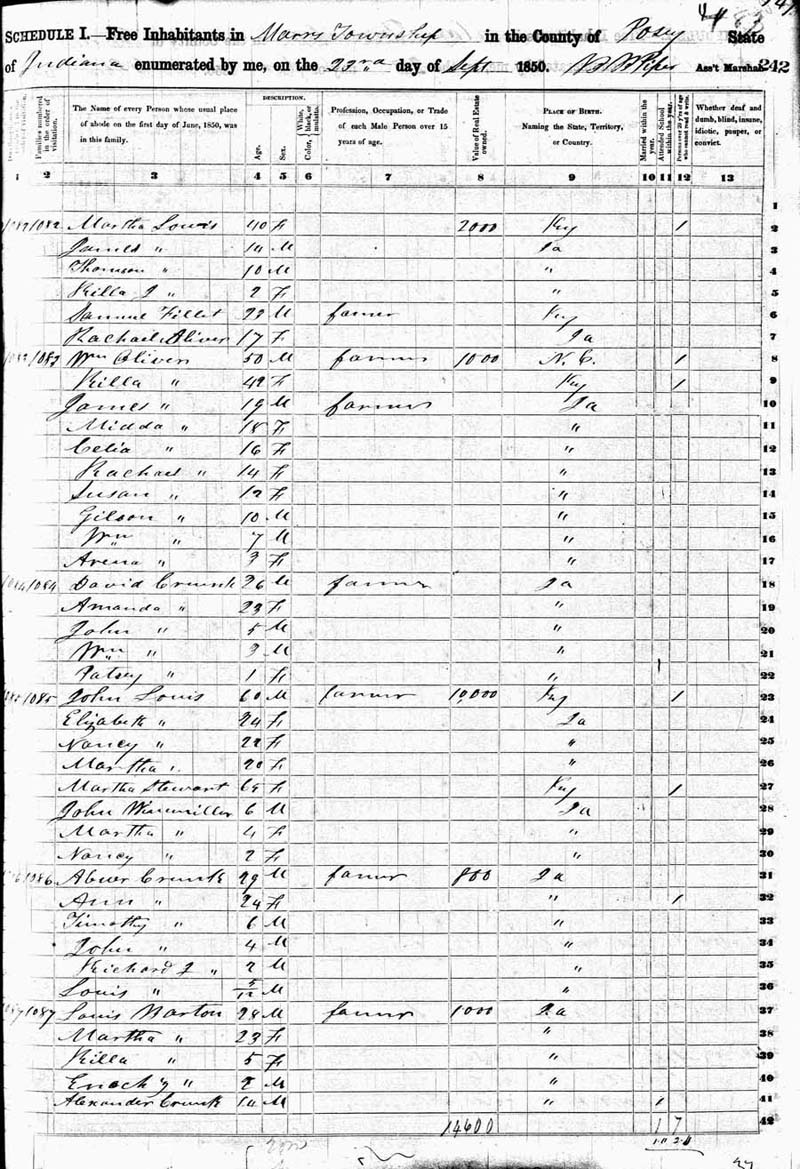 SCHEDULE I.—Free Inhabitants in Marrs Township in the County of Posey State
of Indiana enumerated by me, on the 23rd day of Sept 1850. Ass't Marshal. 242
The Name of every Person whose usual place of abode on the first day of June, 1850, was in this family.
Families numbered in the order of visitation.
DESCRIPTION.
Age. Sex. Color, White, black, or mulatto.
Profession, Occupation, or Trade of each Male Person over 15 years of age.
Value of Real Estate owned.
PLACE OF BIRTH. Naming the State, Territory, or Country.
Married within the year.
Attended School within the year.
Persons over 20 y'rs of age who cannot read & write.
Whether deaf and dumb, blind, insane, idiotic, pauper, or convict.
1 2 3 4 5 6 7 8 9 10 11 12 13
1
1082 1082 Martha Louis 40 F 2000 Ky 1 2
James " 14 M Ia 3
10 M " 4
Killa J " 2 F " 5
Samuel 22 M farmer Ky 6
Rachael Oliver 17 F Ia 7
1083 1083 Wm Oliver 50 M farmer 1000 N.C. 1 8
Killa " 42 F Ky 1 9
James " 19 M farmer Ia 10
" 18 F " 11
Celia " 16 F " 12
Rachael " 14 F " 13
Susan " 12 F " 14
Gilson " 10 M " 15
Wm " 7 M " 16
Arena " 3 F " 17
1084 1084 David Crunk 26 M farmer Ia 18
Amanda " 23 F " 19
John " 5 M " 20
Wm " 3 M " 21
Patsey " 1 F " 22
1085 1085 John Louis 60 M farmer 10,000 Ky 1 23
Elizabeth " 24 F Ia 24
Nancy " 22 F " 25
Martha " 20 F " 26
Martha Stewart 65 F Ky 1 27
John 6 M Ia 28
Martha " 4 F " 29
Nancy " 2 F " 30
1086 1086 Abner Crunk 29 M farmer 800 Ia 31
Ann " 24 F " 1 32
Timothy " 6 M " 33
John " 4 M " 34
Richard J " 2 M " 35
Louis " 5/12 M " 36
1087 1087 Louis Barton 28 M farmer 1000 Ia 37
Martha " 23 F " 38
Killa " 5 F " 39
Enoch " 2 M " 40
Alexander Crunk 14 M " 1 41
14600 1 7 42